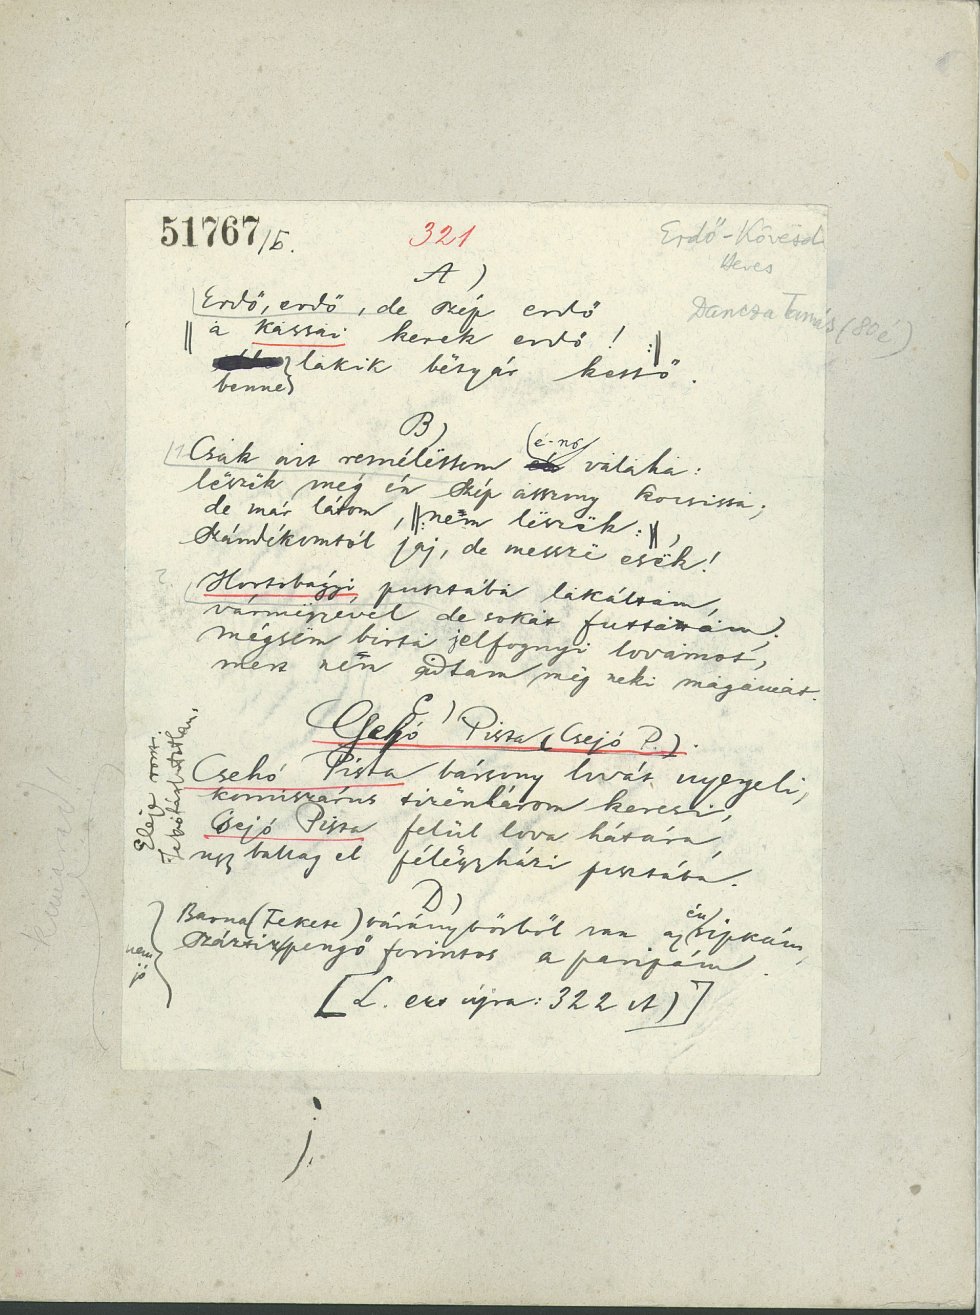 51767/b.
321
Erdő-Kövesd
Heves
Dancza Tamás (80 é)
A)
Erdő, erdő, de szép erdő
a kassai kerek erdő!
benne} lakik bëtyár kettő.
B)
Csak azt reméllettem é-nö valaha:
lëszëk még én szép asszony kocsissa;
de már látom, ||: nëm lëszëk :||,
szándékomtól jaj, de messzë esëk!
Hortobágyi pusztába lakáltam,
vármëgyével de sokat futtattam;
mégsëm birta jelfognyi lovamot,
mert nëm adtam még neki magamat.
C)
Csehó Pista (Csejó P.).
Csehó Pista bársony lovát nyergeli,
komiszárus tizënhárom keresi,
Csejó Pista felül lova hátára,
ugy ballag el félëgyházi pusztába.
Eleje rossz.
D)
Barna (Fekete) báránybőrből van az én sipkám,
Száztiz pengő forintos a paripám.
nem jó
[L. ezt újra: 322 A)]
j.